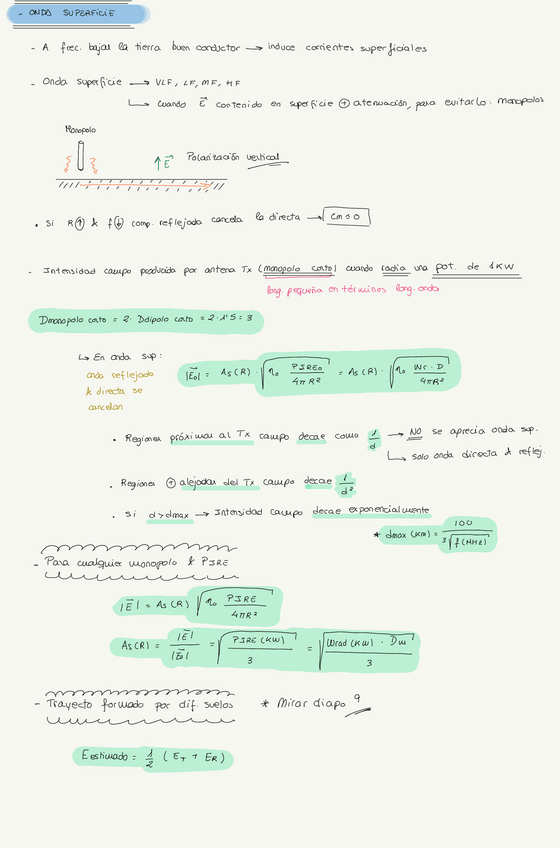 - ONDA SUPERFICIE
- A frec. bajas la tierra buen conductor → induce corrientes superficiales
- Onda superficie → VLF, LF, MF, HF
↳ Cuando E⃗ contenido en superficie ⊕ atenuación, para evitarlo: monopolos
Monopolo
↑E⃗ Polarización vertical
• Si R(↑) & f(↓) comp. reflejada cancela la directa →
- Intensidad campo producida por antena Tx (monopolo corto) cuando radia una pot. de 1KW
long. pequeña en términos long. onda
Dmonopolo corto = 2· Ddipolo corto = 2·1'5 = 3
↳ En onda sup:
onda reflejada
& directa se
cancelan
|E⃗o| = As(R) · √(η₀ PIREo / 4πR²) = As(R) · √(η₀ Wr · D / 4πR²)
• Regiones próximas al Tx campo decae como 1/d → NO se aprecia onda sup.
↳ solo onda directa & reflej.
• Regiones ⊕ alejadas del Tx campo decae 1/d²
• Si d>dmax → Intensidad campo decae exponencialmente
* dmax (km) = 100 / ³√f(MHz)
- Para cualquier monopolo & PIRE
|E⃗| = As(R) √(η₀ PIRE / 4πR²)
As(R) = |E⃗| / |E⃗o| = √(PIRE(KW) / 3) = √(Wrad(KW) · Dm / 3)
- Trayecto formado por dif. suelos * Mirar diapo 9
Eestimado = 1/2 (ET + ER)